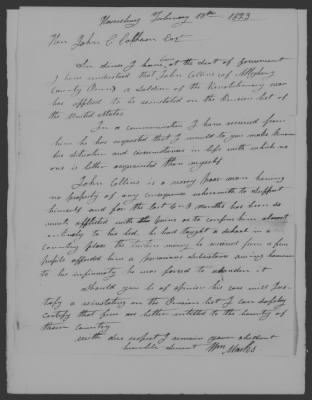 Harrisburg February 18th 1823
Hon John C Calhoun Esqr
Sir since I have been at the seat of government
I have understood that John Collins of Allegheny
County (Penna) a Soldier of the Revolutionary war
has applied to be reinstated on the Pension list of
the United States
In a communication I have received from
him he has requested that I would to you make known
his situation and circumstances in life with which no
one is better acquainted than myself
John Collins is a very poor man having
no property of any consequence wherewith to support
himself and for the last months has been so
much afflicted with the pains as to confine him almost
entirely to his bed. he had taught a school in a
country place the trifling money he received from a few
pupils afforded him a precarious subsistence owing however
to his infirmity he was forced to abandon it
Should you be of opinion his case will jus-
tify a reinstating on the Pension list I can safely
certify that few are better entitled to the bounty of
their country
with due respect I remain your obedient
humble servant Wm Marks